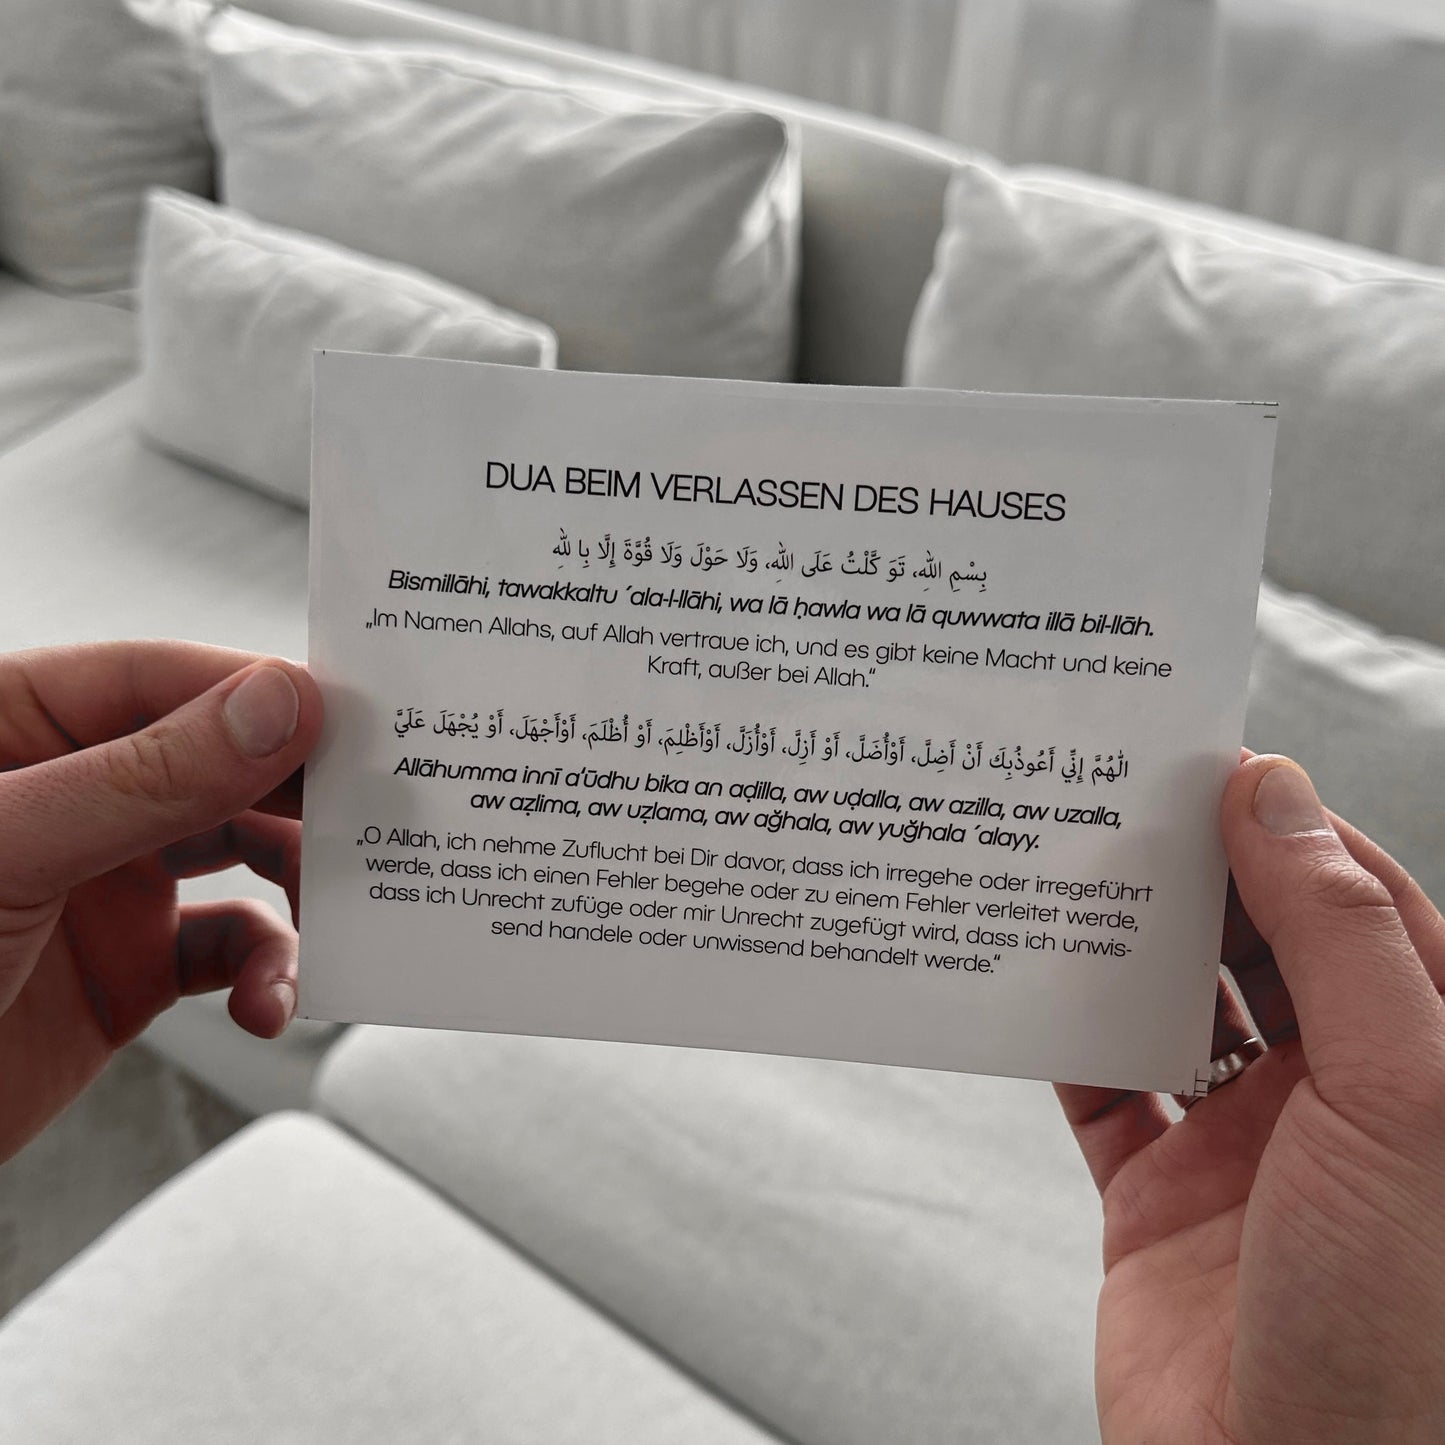 DUA BEIM VERLASSEN DES HAUSES
بِسْمِ اللهِ، تَوَ كَّلْتُ عَلَى اللهِ، وَلَا حَوْلَ وَلَا قُوَّةَ إِلَّا بِا للهِ
Bismillāhi, tawakkaltu ´ala-l-llāhi, wa lā ḥawla wa lā quwwata illā bil-llāh.
„Im Namen Allahs, auf Allah vertraue ich, und es gibt keine Macht und keine
Kraft, außer bei Allah.“
اللّٰهُمَّ إِنِّي أَعُوذُبِكَ أَنْ أَضِلَّ، أَوْأُضَلَّ، أَوْ أَزِلَّ، أَوْأُزَلَّ، أَوْأَظْلِمَ، أَوْ أُظْلَمَ، أَوْأَجْهَلَ، أَوْ يُجْهَلَ عَلَيَّ
Allāhumma innī a'ūdhu bika an aḍilla, aw uḍalla, aw azilla, aw uzalla,
aw aẓlima, aw uẓlama, aw ağhala, aw yuğhala ´alayy.
„O Allah, ich nehme Zuflucht bei Dir davor, dass ich irregehe oder irregeführt
werde, dass ich einen Fehler begehe oder zu einem Fehler verleitet werde,
dass ich Unrecht zufüge oder mir Unrecht zugefügt wird, dass ich unwis-
send handele oder unwissend behandelt werde.“